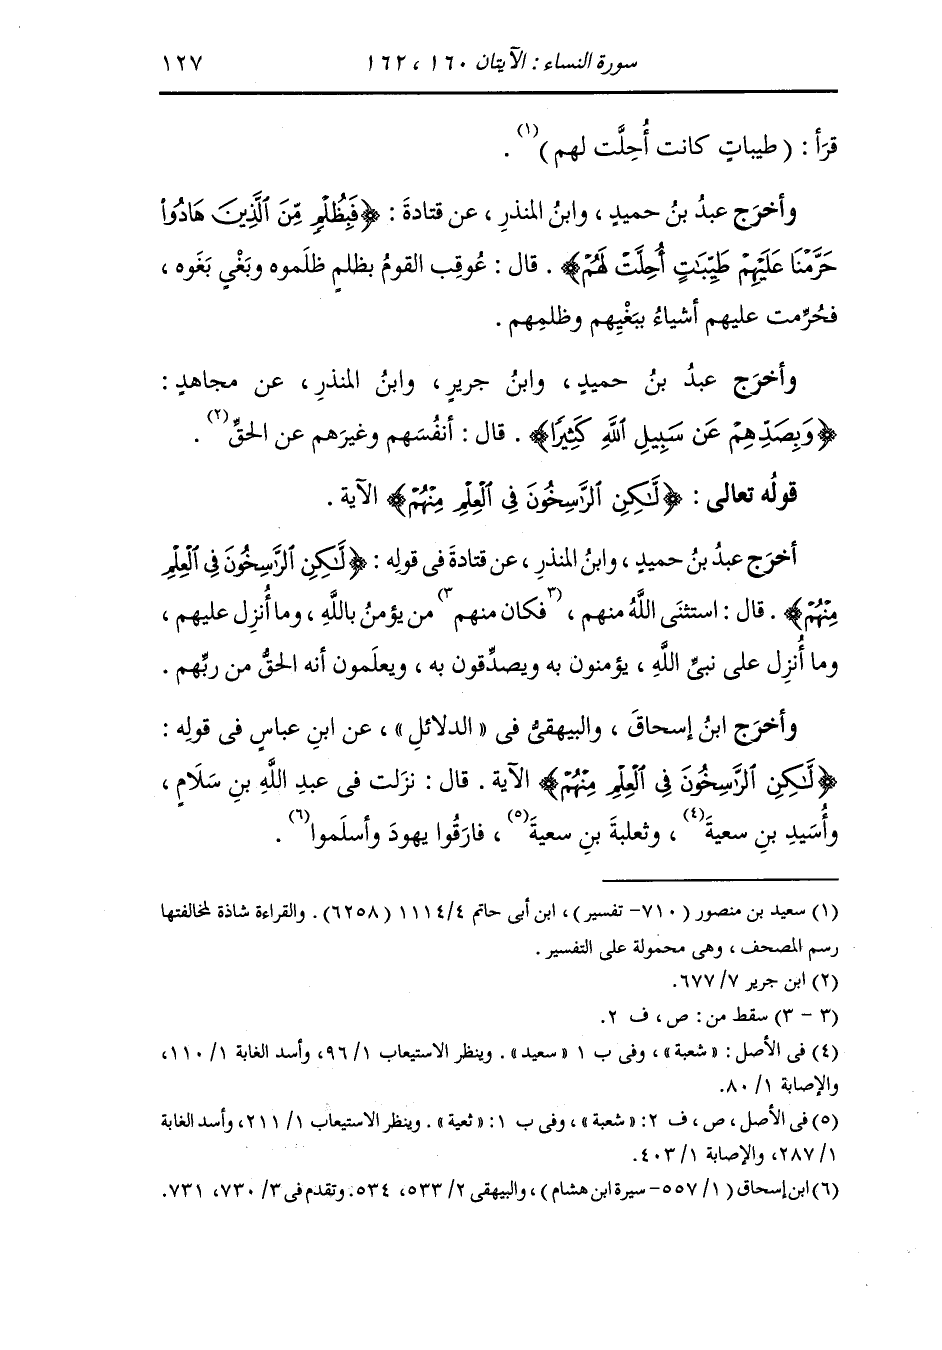 سورة النساء : الآيتان ١٦٠ ، ١٦٢ ١٢٧
قرَأ : ( طيباتٍ كانت أُحِلَّت لهم )(١) .
وأخرَج عبدُ بنُ حميدٍ ، وابنُ المنذرِ ، عن قتادةَ : ﴿فَبِظُلْمٍ مِّنَ ٱلَّذِينَ هَادُوا۟
حَرَّمْنَا عَلَيْهِمْ طَيِّبَـٰتٍ أُحِلَّتْ لَهُمْ﴾ . قال : عُوقِب القومُ بظلمٍ ظلَموه وبَغْيٍ بَغَوه ،
فحُرِّمت عليهم أشياءُ ببَغْيِهم وظلمِهم .
وأخرَج عبدُ بنُ حميدٍ ، وابنُ جريرٍ ، وابنُ المنذرِ ، عن مجاهدٍ :
﴿وَبِصَدِّهِمْ عَن سَبِيلِ ٱللَّهِ كَثِيرًا﴾ . قال : أنفُسَهم وغيرَهم عن الحقِّ(٢) .
قولُه تعالى : ﴿لَّـٰكِنِ ٱلرَّٰسِخُونَ فِى ٱلْعِلْمِ مِنْهُمْ﴾ الآية .
أخرَج عبدُ بنُ حميدٍ ، وابنُ المنذرِ ، عن قتادةَ فى قولِه : ﴿لَّـٰكِنِ ٱلرَّٰسِخُونَ فِى ٱلْعِلْمِ
مِنْهُمْ﴾ . قال : استثنَى اللَّهُ منهم ، (٣فكان منهم٣) من يؤمنُ باللَّهِ ، وما أُنزِل عليهم ،
وما أُنزِل على نبىِّ اللَّهِ ، يؤمنون به ويصدِّقون به ، ويعلَمون أنه الحقُّ من ربِّهم .
وأخرَج ابنُ إسحاقَ ، والبيهقىُّ فى « الدلائلِ » ، عن ابنِ عباسٍ فى قولِه :
﴿لَّـٰكِنِ ٱلرَّٰسِخُونَ فِى ٱلْعِلْمِ مِنْهُمْ﴾ الآية . قال : نزَلت فى عبدِ اللَّهِ بنِ سَلَامٍ ،
وأُسَيدِ بنِ سعيةَ(٤) ، وثعلبةَ بنِ سعيةَ(٥) ، فارَقُوا يهودَ وأسلَموا(٦) .
(١) سعيد بن منصور ( ٧١٠ - تفسير ) ، ابن أبى حاتم ١١١٤/٤ (٦٢٥٨) . والقراءة شاذة لمخالفتها
رسم المصحف ، وهى محمولة على التفسير .
(٢) ابن جرير ٧/ ٦٧٧.
(٣ - ٣) سقط من : ص ، ف ٢.
(٤) فى الأصل : « شعبة » ، وفى ب ١ « سعيد » . وينظر الاستيعاب ١/ ٩٦، وأسد الغابة ١/ ١١٠،
والإصابة ١/ ٨٠.
(٥) فى الأصل ، ص ، ف ٢: « شعبة » ، وفى ب ١: « ثعية » . وينظر الاستيعاب ١/ ٢١١، وأسد الغابة
١/ ٢٨٧، والإصابة ١/ ٤٠٣.
(٦) ابن إسحاق ( ١/ ٥٥٧ - سيرة ابن هشام ) ، والبيهقى ٢/ ٥٣٣، ٥٣٤. وتقدم فى ٣/ ٧٣٠، ٧٣١.